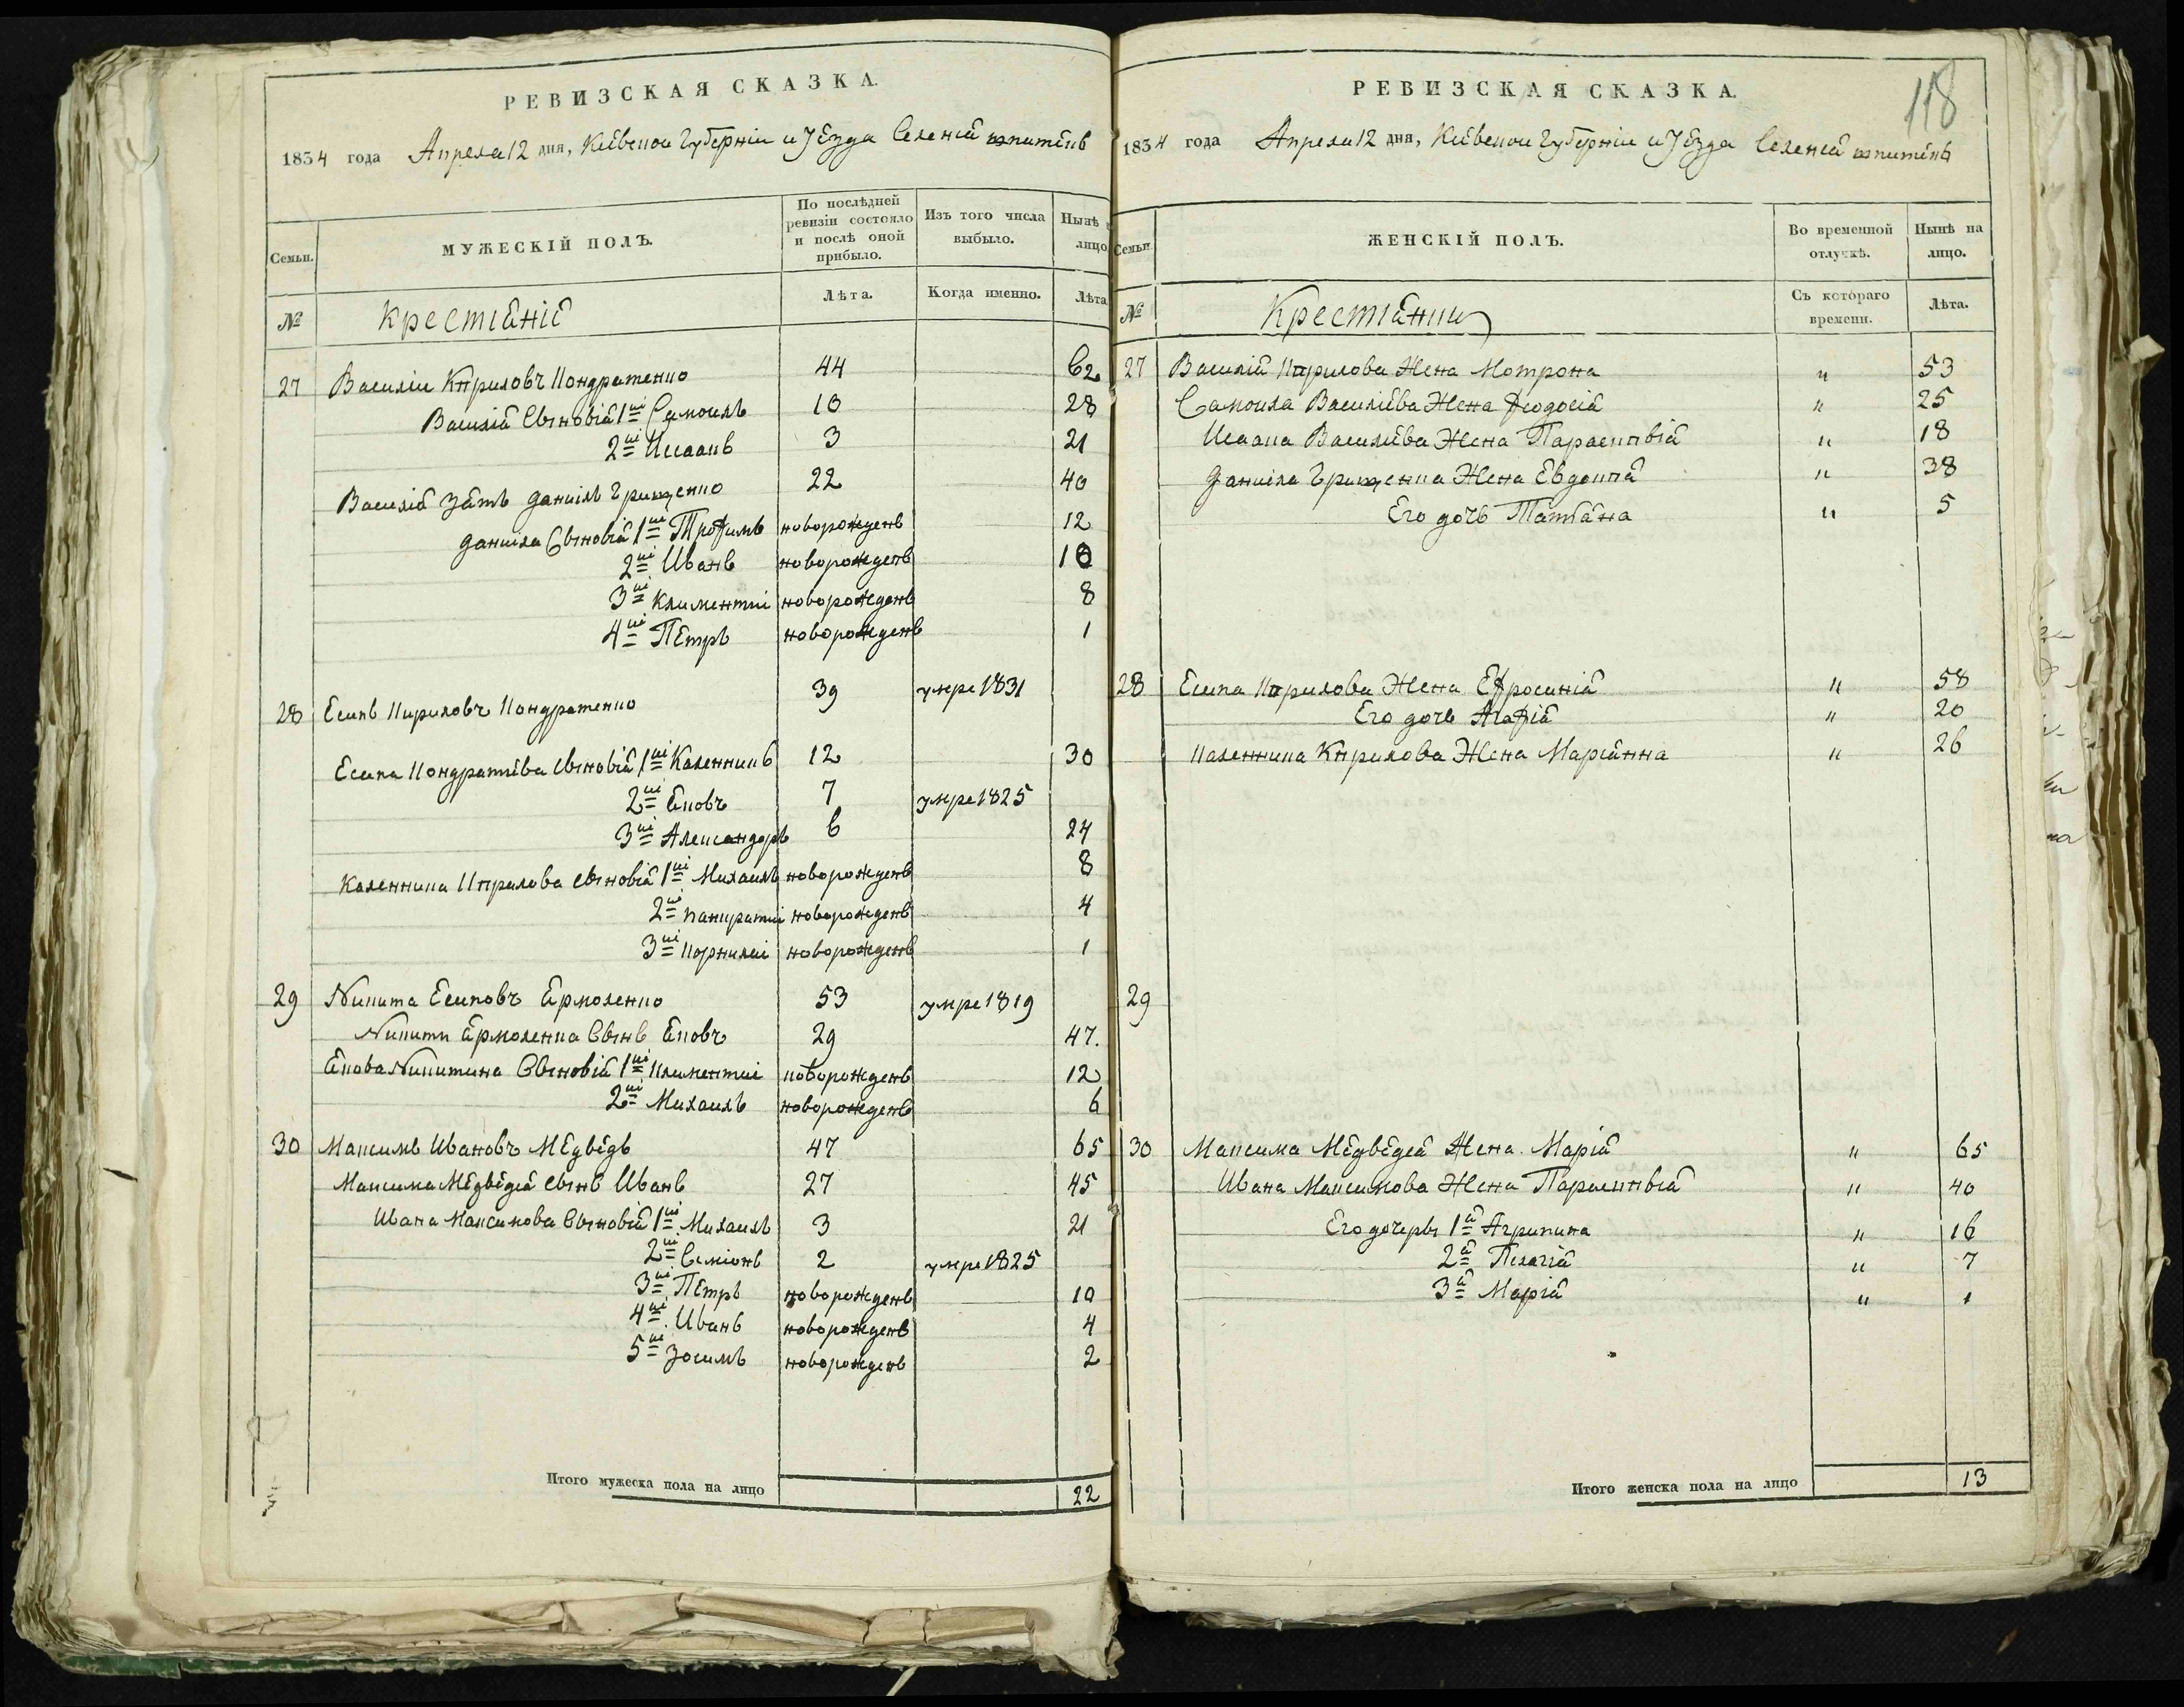 РЕВИЗСКАЯ СКАЗКА.
1834 года Апреля 12 дня, Кіевскои Губерніи и Уѣзда Селенія
Семьи.
МУЖЕСКІЙ ПОЛЪ.
По послѣдней ревизіи состояло и послѣ оной прибыло.
Изъ того числа выбыло.
Нынѣ лицо
№
Крестіяніа
Лѣта.
Когда именно.
Лѣта
27 Василіи Кириловъ Кондратенко 44 62
Василія Сыновія 1ѝ Самоилъ 10 28
2ѝ Исаакъ 3 21
Василія Зять Даниілъ Грищенко 22 40
Даниіла Сыновія 1ѝ Трофимъ новорожденъ 12
2ѝ Иванъ новорожденъ 10
3ѝ Климентіи новорожденъ 8
4ѝ Пётръ новорожденъ 1
28 Есипъ Кириловъ Кондратенко 39 умре 1831
Есипа Кондратіева Сыновія 1ѝ Каленникъ 12 30
2ѝ Яковъ 7 умре 1825
3ѝ Александоръ 6 24
Каленника Кирилова Сыновія 1ѝ Михаилъ новорожденъ 8
2ѝ Панкратіи новорожденъ 4
3ѝ Корниліи новорожденъ 1
29 Никита Есиповъ Ярмоленко 53 умре 1819
Никити Ярмоленка Сынъ Яковъ 29 47.
Якова Никитина Сыновія 1ѝ Климентіи новорожденъ 12
2ѝ Михаилъ новорожденъ 6
30 Максимъ Ивановъ Мѣдвѣдь 47 65
Максима Мѣдвѣдея Сынъ Иванъ 27 45
Ивана Максимова Сыновія 1ѝ Михаилъ 3 21
2ѝ Симіонъ 2 умре 1825
3ѝ Пётръ новорожденъ 10
4ѝ Иванъ новорожденъ 4
5ѝ Зосимъ новорожденъ 2
Итого мужеска пола на лицо 22
118
РЕВИЗСКАЯ СКАЗКА.
1834 года Апреля 12 дня, Кіевскои Губерніи и Уѣзда Селенія
Семьи
ЖЕНСКІЙ ПОЛЪ.
Во временной отлучкѣ.
Нынѣ на лицо.
№
Крестіянки
Съ котораго времени.
Лѣта.
27 Василія Кирилова Жена Мотрона " 53
Самоила Василіева Жена Феодосія " 25
Исаака Василіева Жена Параскивія " 18
Даниіла Грищенка Жена Евдокія " 38
Его дочь Татіана " 5
28 Есипа Кирилова Жена Ефросинія " 58
Его дочь Агафія " 20
Каленника Кирилова Жена Маріанна " 26
29
30 Максима Мѣдвѣдея Жена Марія " 65
Ивана Максимова Жена Параскивія " 40
Его дочеры 1я Агрипина " 16
2я Пелагія " 7
3я Марія " 1
Итого женска пола на лицо 13